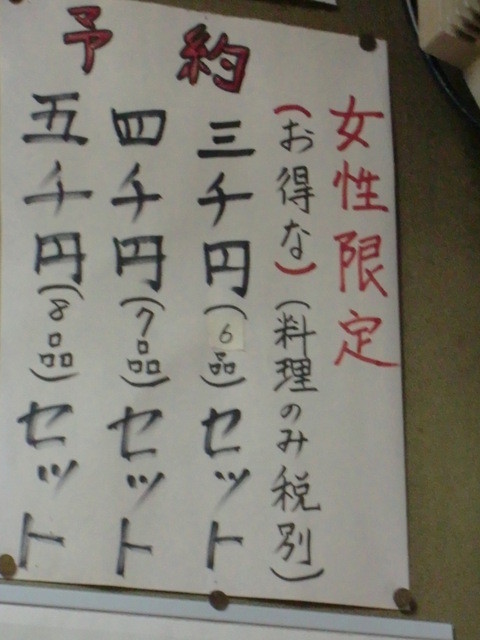 予約
女性限定
(お得な)(料理のみ税別)
三千円(6品)セット
四千円(7品)セット
五千円(8品)セット